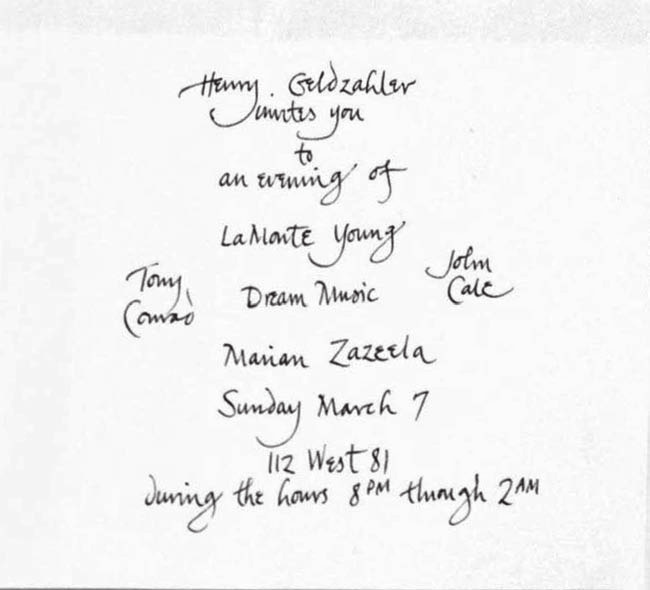 Henry Geldzahler
invites you
to
an evening of
LaMonte Young
Tony Conrad
Dream Music
John Cale
Marian Zazeela
Sunday March 7
112 West 81
during the hours 8 PM through 2 AM